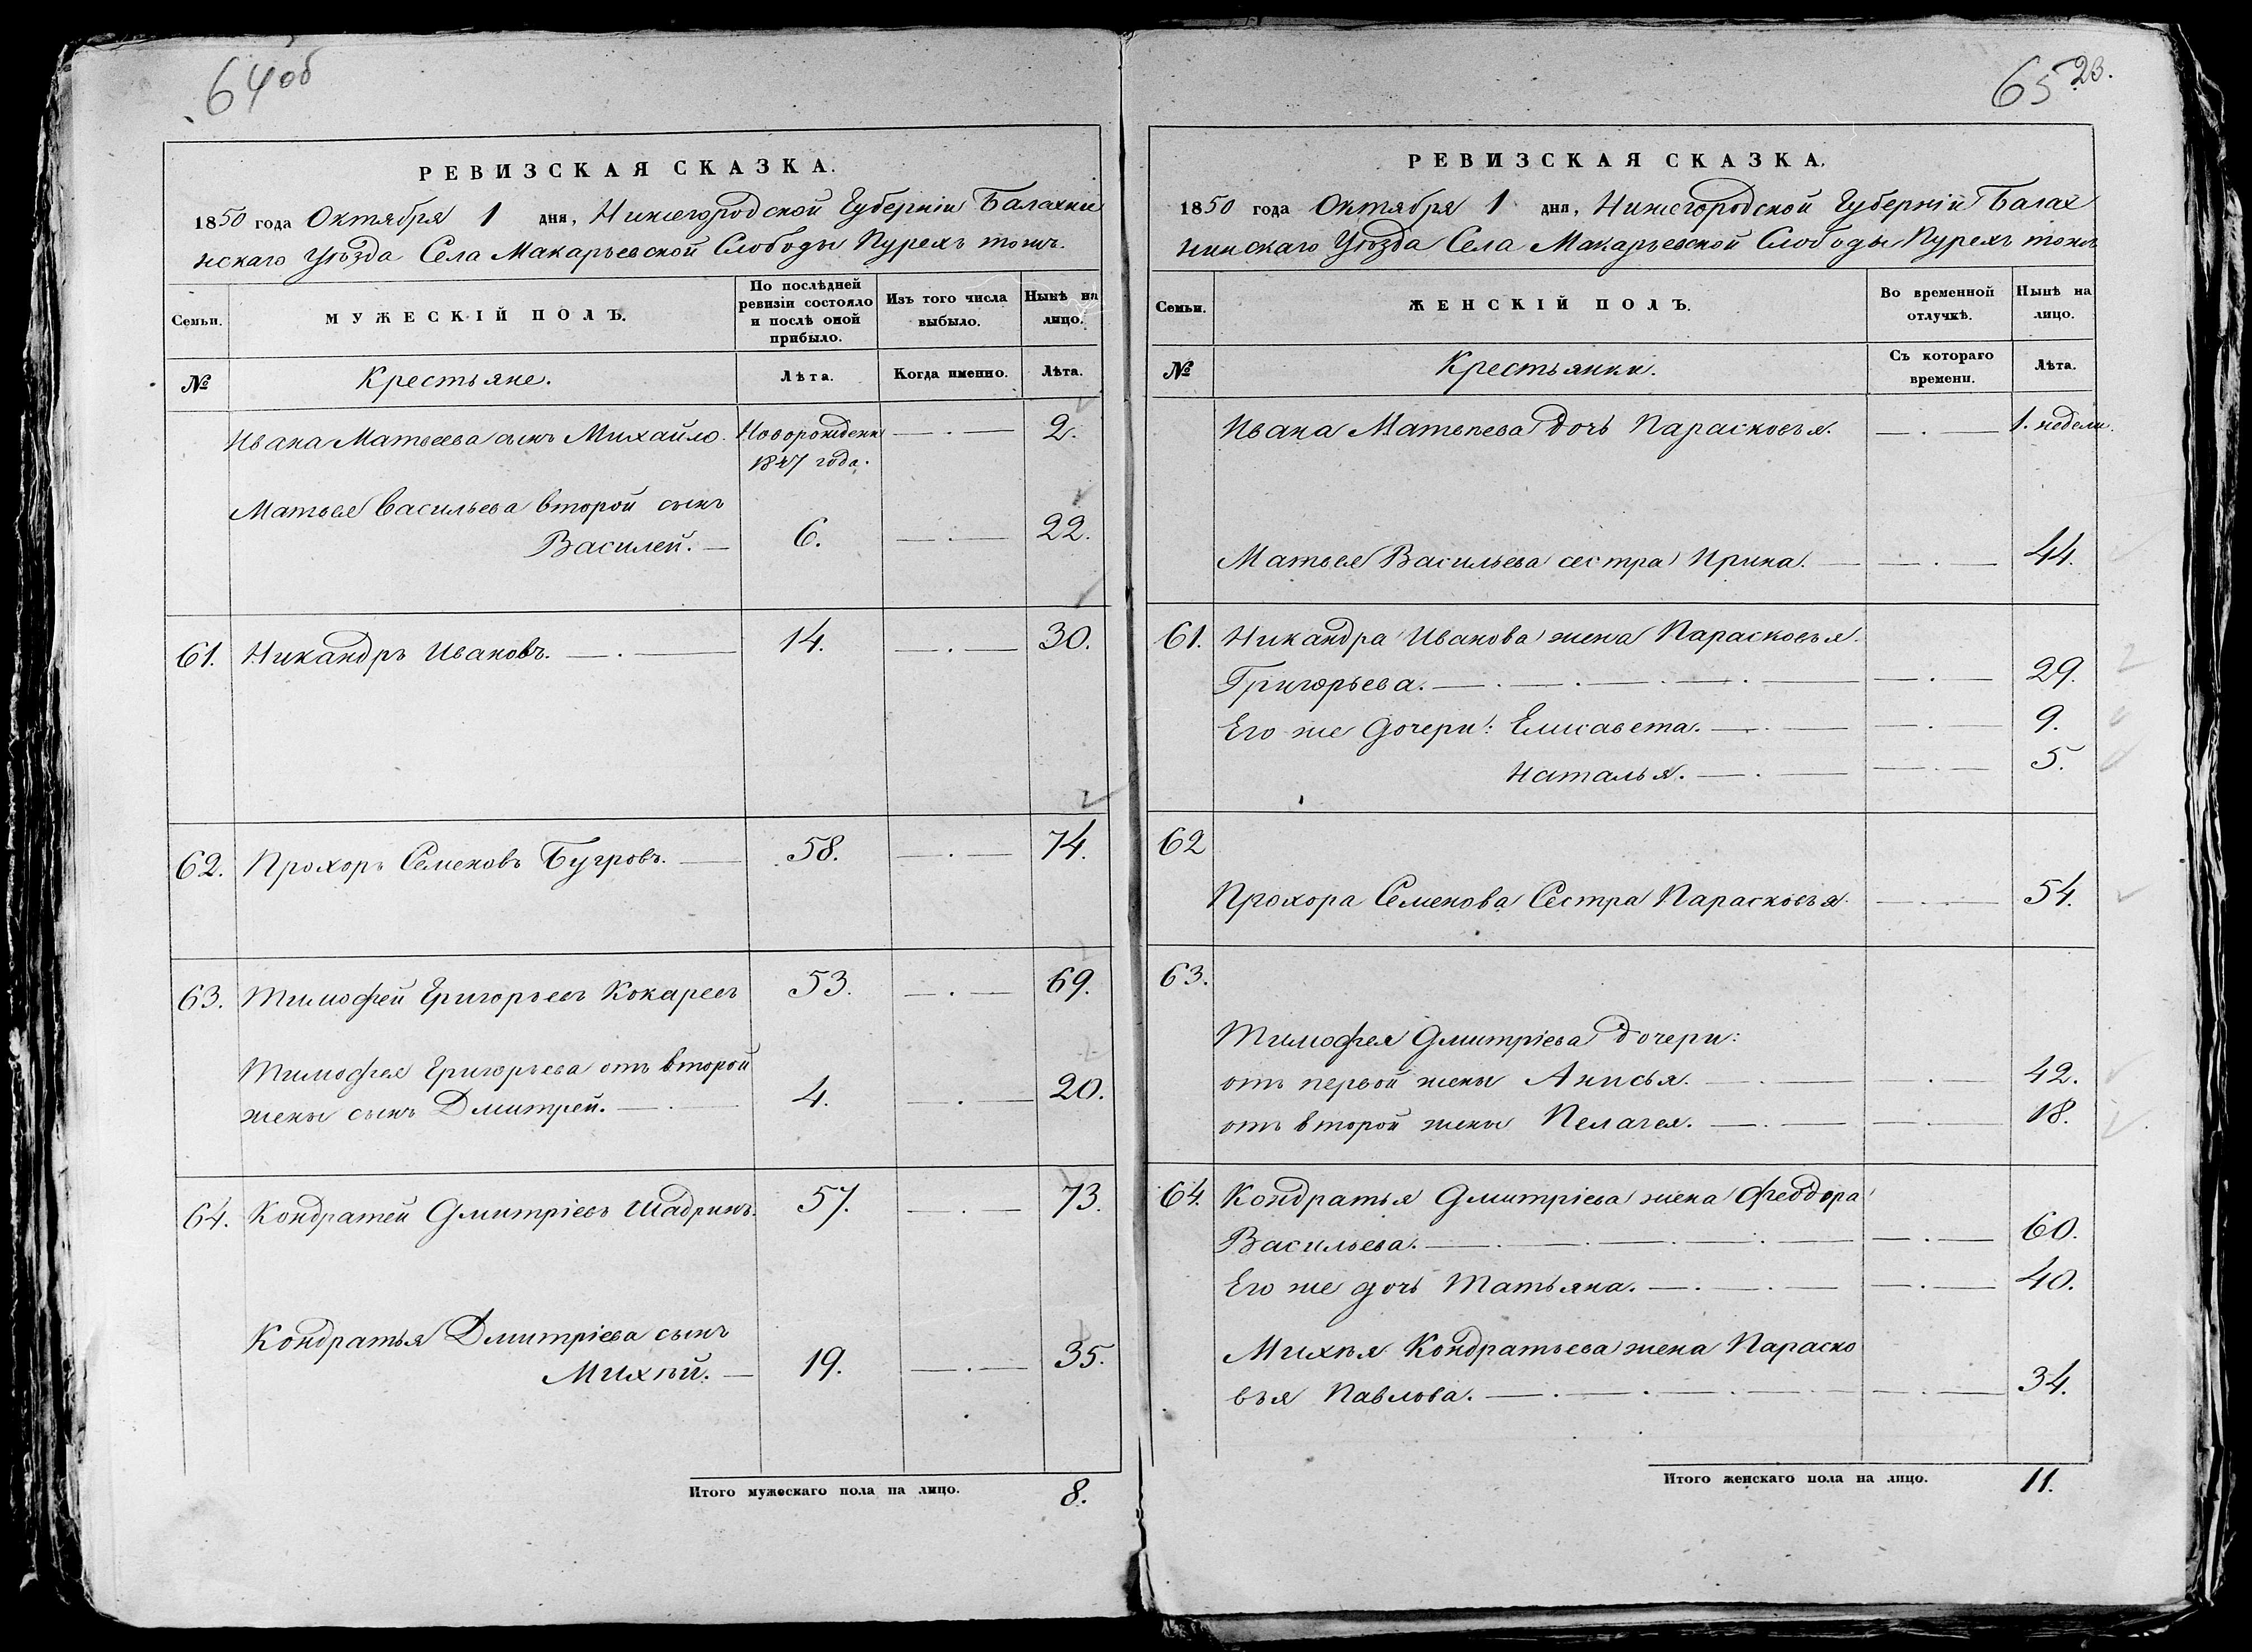 64об
РЕВИЗСКАЯ СКАЗКА.
1850 года Октября 1 дня, Нижегородской Губерніи Балахни
нскаго Уѣзда Села Макарьевской Слободы Пурехъ тожъ.
Семьи.
МУЖЕСКІЙ ПОЛЪ.
По послѣдней ревизіи состояло и послѣ оной прибыло.
Изъ того числа выбыло.
Нынѣ на лицо.
№
Крестьяне.
Лѣта.
Когда именно.
Лѣта.
Ивана Матвеева сынъ Михайло. Новорожденн —·— 2.
1847 года.
Матвея Васильева второй сынъ
Василей. — 6. —·— 22.
61. Никандръ Ивановъ. —·— 14. —·— 30.
62. Прохоръ Семеновъ Бугровъ. — 58. —·— 74.
63. Тимофей Григорьевъ Кокаревъ 53. —·— 69.
Тимофея Григорьева отъ второй
жены сынъ Дмитрей. —·— 4. —·— 20.
64. Кондратей Дмитріевъ Шадринъ. 57. —·— 73.
Кондратья Дмитріева сынъ
Михѣй. — 19. —·— 35.
Итого мужескаго пола на лицо. 8.
65 23.
РЕВИЗСКАЯ СКАЗКА.
1850 года Октября 1 дня, Нижегородской Губерніи Балах
нинскаго Уѣзда Села Макарьевской Слободы Пурехъ тожъ
Семьи.
ЖЕНСКІЙ ПОЛЪ.
Во временной отлучкѣ.
Нынѣ на лицо.
№
Крестьянки.
Съ котораго времени.
Лѣта.
Ивана Матвѣева дочь Парасковья. —·— 1. недели.
Матвея Васильева сестра Ирина. — —·— 44.
61. Никандра Иванова жена Парасковья
Григорьева. —·—·—·—·— —·— 29.
Его же дочери: Елисавета. —·— —·— 9.
Наталья. —·— —·— 5.
62
Прохора Семенова Сестра Парасковья —·— 54.
63.
Тимофея Дмитріева дочери:
отъ первой жены Анисья. —·— —·— 42.
отъ второй жены Пелагея. —·— —·— 18.
64. Кондратья Дмитріева жена Феодора
Васильева. —·—·—·—·— —·— 60.
Его же дочь Татьяна. —·—·— —·— 40.
Михѣя Кондратьева жена Параско
вья Павлова. —·—·—·—·— —·— 34.
Итого женскаго пола на лицо. 11.